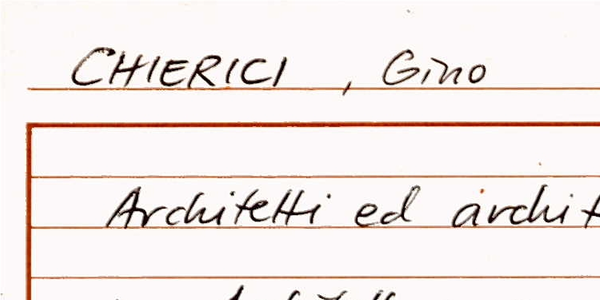 CHIERICI, Gino
Architetti ed archit